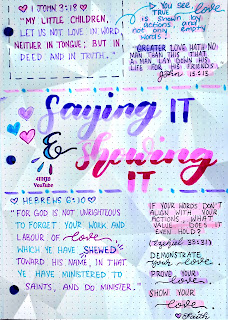 ♡ 1 JOHN 3:18 ♡
"MY LITTLE CHILDREN,
LET US NOT LOVE IN WORD,
NEITHER IN TONGUE; BUT IN
DEED AND IN TRUTH.
YOU SEE,
TRUE love
IS SHOWN BY
ACTIONS and
not only empty
words!
"GREATER LOVE HATH NO
MAN THAN THIS, THAT
A MAN LAY DOWN HIS
LIFE FOR HIS FRIENDS."
John 15:13
Saying IT
& Shewing
IT
YouTube
♡ HEBREWS 6:10 ♡
"FOR GOD IS NOT UNRIGHTEOUS
TO FORGET YOUR WORK AND
LABOUR OF love,
WHICH YE HAVE SHEWED
TOWARD HIS NAME, IN THAT
YE HAVE MINISTERED TO
SAINTS, AND DO MINISTER."
IF YOUR WORDS DON'T
ALIGN WITH YOUR
ACTIONS, WHAT
VALUE DOES IT
EVEN HOLD?
(Ezekiel 33:31)
DEMONSTRATE
your love.
PROVE YOUR
love.
SHOW YOUR
love.
♡ Faith